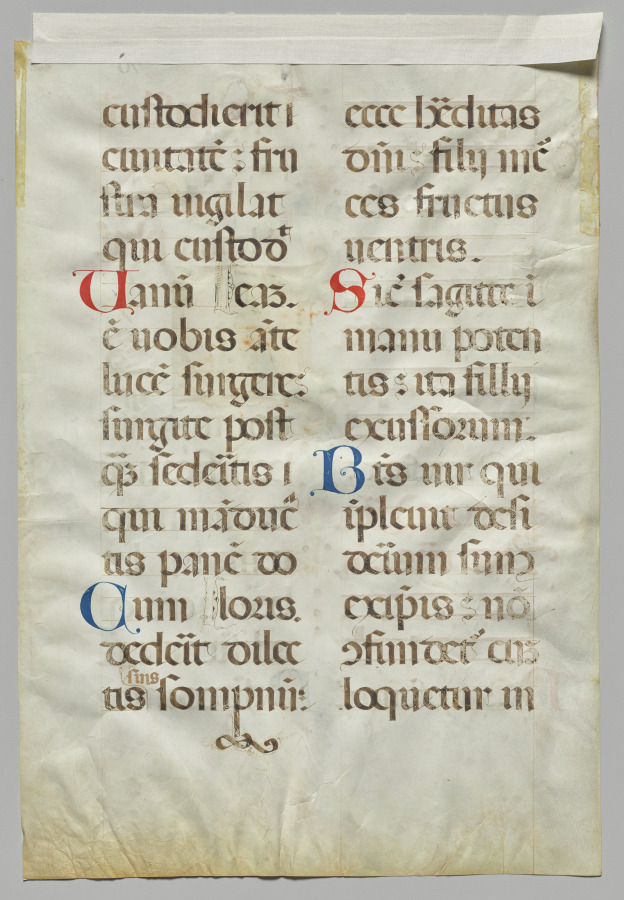 custodierit i
ciuitatē : fru
stra uigilat
qui custodᵗ
Uanū eaꝫ.
ē uobis āte
lucē surgere:
surgite post
qꝫ sedeītis i
qui māducᵃ
tis panē do
Cum loris.
dederīt dilec
suis
tis sompnū:
ecce hēditas
dn̄i : filij mē
ces fructus
uentris.
Sic̄ sagitte ī
manu poten
tis : ita filij
excussorum.
B̄tis uir qui
īpleuit desi
deriū suuꝫ
ex ip̄is : nō
ↄfundet᷑ cuꝫ
loquetur in